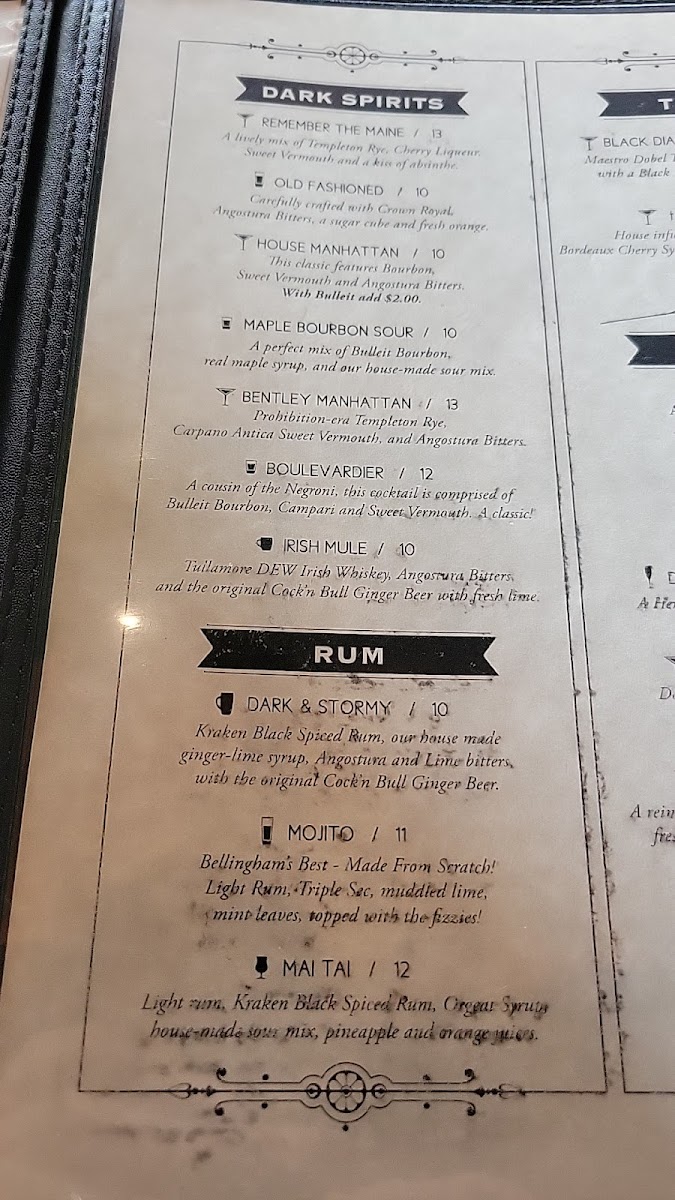 DARK SPIRITS
REMEMBER THE MAINE / 13
A lively mix of Templeton Rye, Cherry Liqueur,
Sweet Vermouth and a kiss of absinthe.
OLD FASHIONED / 10
Carefully crafted with Crown Royal,
Angostura Bitters, a sugar cube and fresh orange.
HOUSE MANHATTAN / 10
This classic features Bourbon,
Sweet Vermouth and Angostura Bitters.
With Bulleit add $2.00.
MAPLE BOURBON SOUR / 10
A perfect mix of Bulleit Bourbon,
real maple syrup, and our house-made sour mix.
BENTLEY MANHATTAN / 13
Prohibition-era Templeton Rye,
Carpano Antica Sweet Vermouth, and Angostura Bitters.
BOULEVARDIER / 12
A cousin of the Negroni, this cocktail is comprised of
Bulleit Bourbon, Campari and Sweet Vermouth. A classic!
IRISH MULE / 10
Tullamore DEW Irish Whiskey, Angostura Bitters,
and the original Cock'n Bull Ginger Beer with fresh lime.
RUM
DARK & STORMY / 10
Kraken Black Spiced Rum, our house made
ginger-lime syrup, Angostura and Lime bitters,
with the original Cock'n Bull Ginger Beer.
MOJITO / 11
Bellingham's Best - Made From Scratch!
Light Rum, Triple Sec, muddled lime,
mint leaves, topped with the fizzies!
MAI TAI / 12
Light rum, Kraken Black Spiced Rum, Orgeat Syrup,
house-made sour mix, pineapple and orange juices.
BLACK
Maestro Dobel
with a Black
House
Bordeaux Cherry
A
A
fres